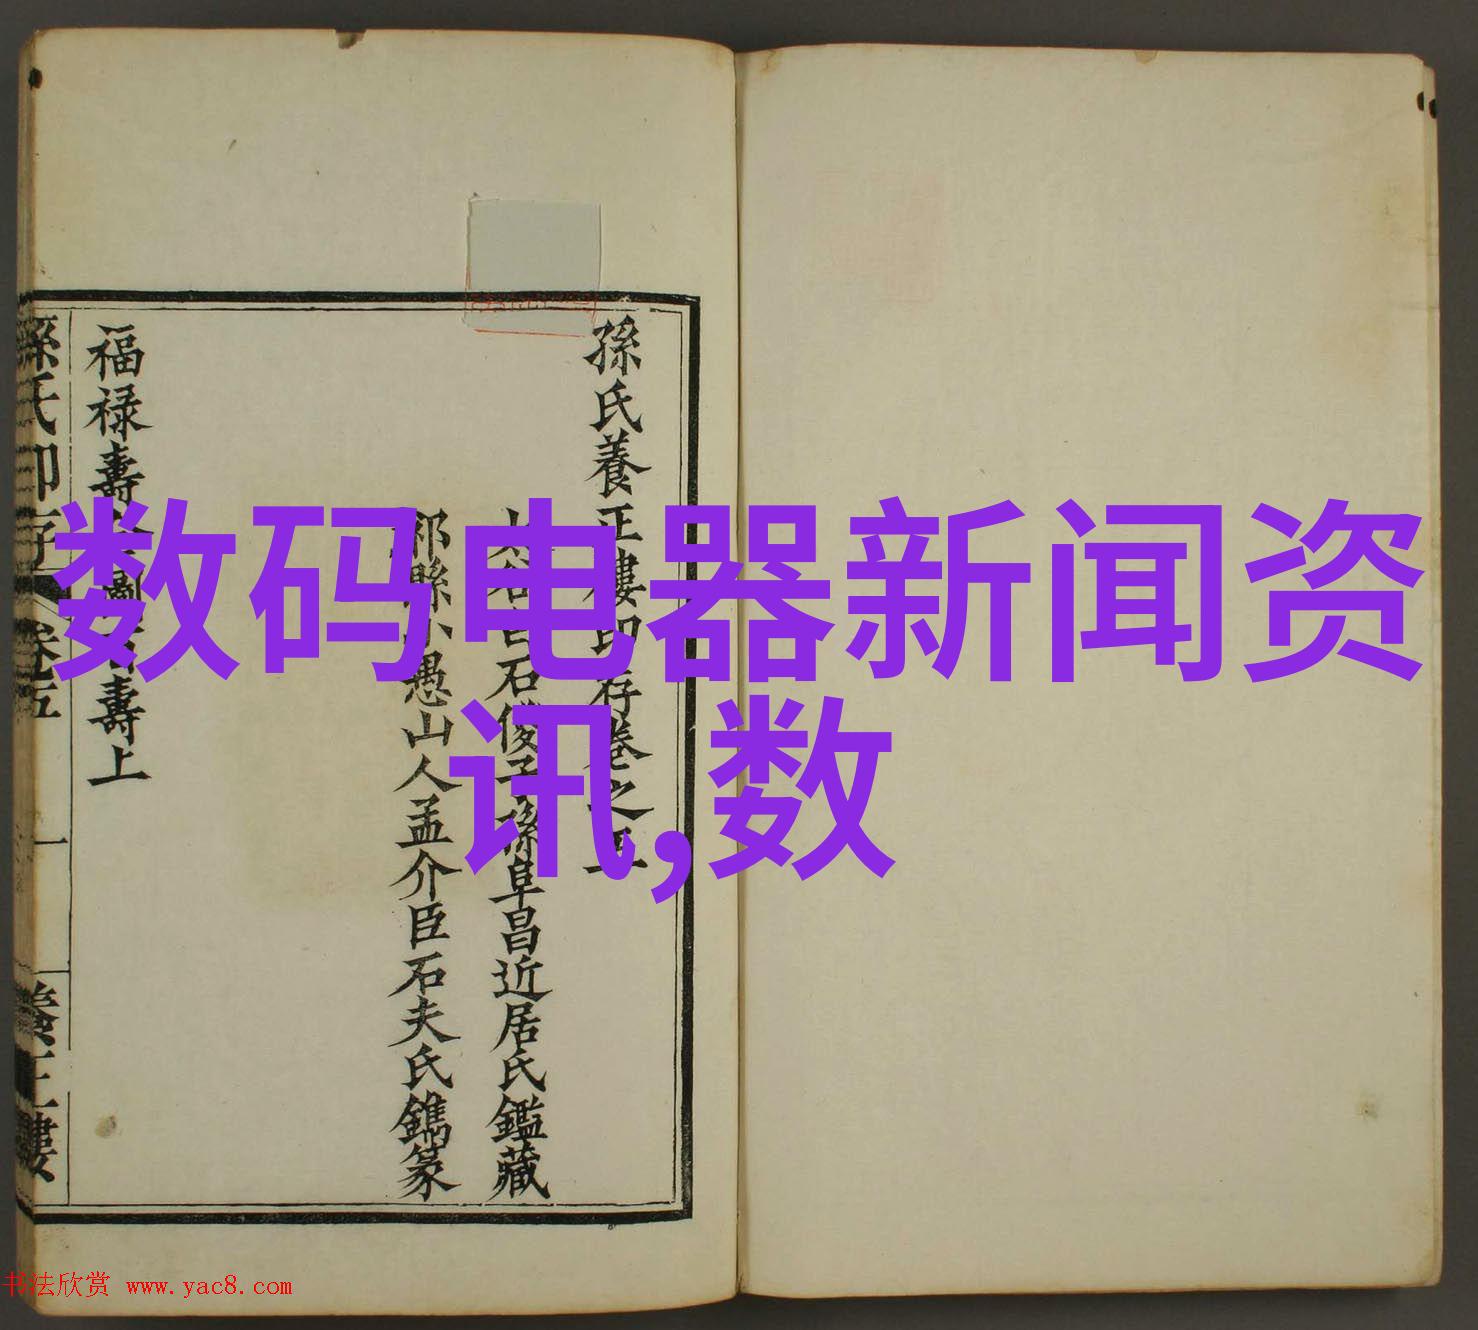 孫氏養正樓印存卷之五
太谷古石儍子孫阜昌近居氏鑑藏
祁縣小愚山人孟介臣石夫氏鐫篆
福禄壽 壽上
孫氏印存 卷五
一
養正樓
数码电器新闻资
讯,数
书法欣赏 www.yac8.com